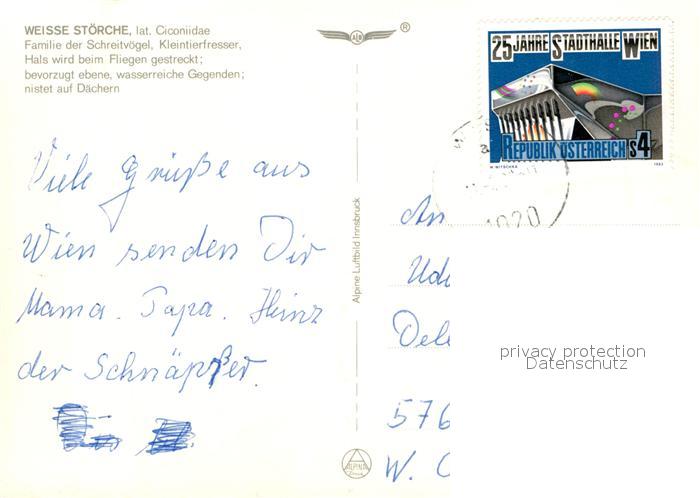 WEISSE STÖRCHE, lat. Ciconiidae
Familie der Schreitvögel, Kleintierfresser,
Hals wird beim Fliegen gestreckt;
bevorzugt ebene, wasserreiche Gegenden;
nistet auf Dächern
®
25 JAHRE STADTHALLE WIEN
REPUBLIK ÖSTERREICH S4
W. WITSCHKA 1983
1020
Viele Grüße aus
Wien senden Dir
Mama. Papa. Heinz
der Schnäpßer.
Alpine Luftbild Innsbruck
ALPINE
An
576
W.
privacy protection
Datenschutz